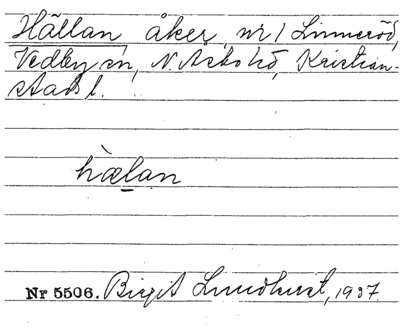 Hällan åker, nr 1 Linneröd,
Vedby sn, N. Åsbo hd, Kristian-
stads l.
hælan
Nr 5506. Birgit Lundkvist, 1937